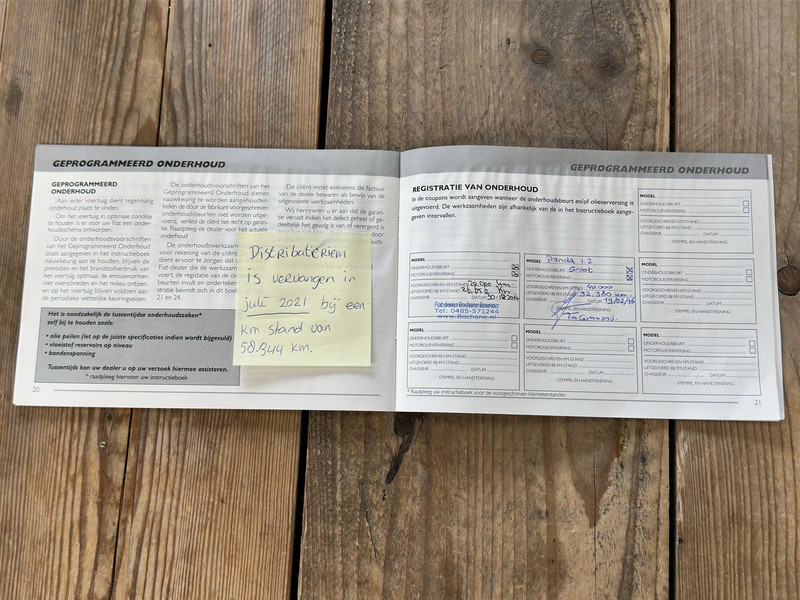 GEPROGRAMMEERD ONDERHOUD
GEPROGRAMMEERD
ONDERHOUD
Aan ieder voertuig dient regelmatig
onderhoud plaats te vinden.
Om het voertuig in optimale conditie
te houden is er voor uw Fiat een onder-
houdsschema ontworpen.
Door de onderhoudsvoorschriften van
het Geprogrammeerd Onderhoud
zoals aangegeven in het instructieboek
nauwkeurig aan te houden, blijven de
prestaties en het brandstofverbruik van
het voertuig optimaal, de emissienormen
niet overschreden en het milieu ontzien,
en zal het voertuig blijven voldoen aan
de periodieke wettelijke keuringseisen.
De onderhoudsvoorschriften van het
Geprogrammeerd Onderhoud dienen
nauwkeurig te worden aangehouden.
Indien de door de fabrikant voorgeschreven
onderhoudsbeurten niet worden uitge-
voerd, verliest de cliënt het recht op garantie.
Raadpleeg de dealer voor het actuele
onderhoud
De onderhoudswerkzaam
voor rekening van de cliënt.
dient ervoor te zorgen dat
Fiat-dealer die de werkzaam
voert, de registratie van de
beurten invult en onderteke
stratie bevindt zich in dit boek
21 en 24.
De cliënt moet eveneens de factuur
van de dealer bewaren als bewijs van de
uitgevoerde werkzaamheden.
Wij herinneren u er aan dat de garan-
tie vervalt indien het defect geheel of ge-
deeltelijk het gevolg is van of verergerd is
Distributieriem
is vervangen in
juli 2021 bij een
km stand van
58.344 km.
Het is noodzakelijk de tussentijdse onderhoudszaken*
zelf bij te houden zoals:
• olie peilen (let op de juiste specificaties indien wordt bijgevuld)
• vloeistof reservoirs op niveau
• bandenspanning
Tussentijds kan uw dealer u op uw verzoek hiermee assisteren.
* raadpleeg hiervoor uw instructieboek
20
GEPROGRAMMEERD ONDERHOUD
REGISTRATIE VAN ONDERHOUD
In de coupons wordt aangeven wanneer de onderhoudsbeurt en/of olieverversing is
uitgevoerd. De werkzaamheden zijn afhankelijk van de in het Instructieboek aange-
geven intervallen.
MODEL
ONDERHOUDSBEURT
MOTOROLIEVERVERSING
VOORGESCHREVEN KM-STAND
UITGEVOERD BIJ KM-STAND
CHASSISNR. DATUM
STEMPEL EN HANDTEKENING
MODEL
ONDERHOUDSBEURT
MOTOROLIEVERVERSING
VOORGESCHREVEN KM-STAND 20.000 km
UITGEVOERD BIJ KM-STAND
CHASSISNR. DATUM
Fiat dealer Bochane Boxmeer
Tel: 0485-571244
www.Bochane.nl
MODEL Panda 1.2
ONDERHOUDSBEURT Groot
MOTOROLIEVERVERSING
VOORGESCHREVEN KM-STAND 40.000
UITGEVOERD BIJ KM-STAND 32.380 km
CHASSISNR. DATUM 19/02/16
MODEL
ONDERHOUDSBEURT
MOTOROLIEVERVERSING
VOORGESCHREVEN KM-STAND
UITGEVOERD BIJ KM-STAND
CHASSISNR. DATUM
STEMPEL EN HANDTEKENING
MODEL
ONDERHOUDSBEURT
MOTOROLIEVERVERSING
VOORGESCHREVEN KM-STAND
UITGEVOERD BIJ KM-STAND
CHASSISNR. DATUM
STEMPEL EN HANDTEKENING
MODEL
ONDERHOUDSBEURT
MOTOROLIEVERVERSING
VOORGESCHREVEN KM-STAND
UITGEVOERD BIJ KM-STAND
CHASSISNR. DATUM
STEMPEL EN HANDTEKENING
MODEL
ONDERHOUDSBEURT
MOTOROLIEVERVERSING
VOORGESCHREVEN KM-STAND
UITGEVOERD BIJ KM-STAND
CHASSISNR. DATUM
STEMPEL EN HANDTEKENING
* Raadpleeg uw instructieboek voor de voorgeschreven kilometerstanden
21